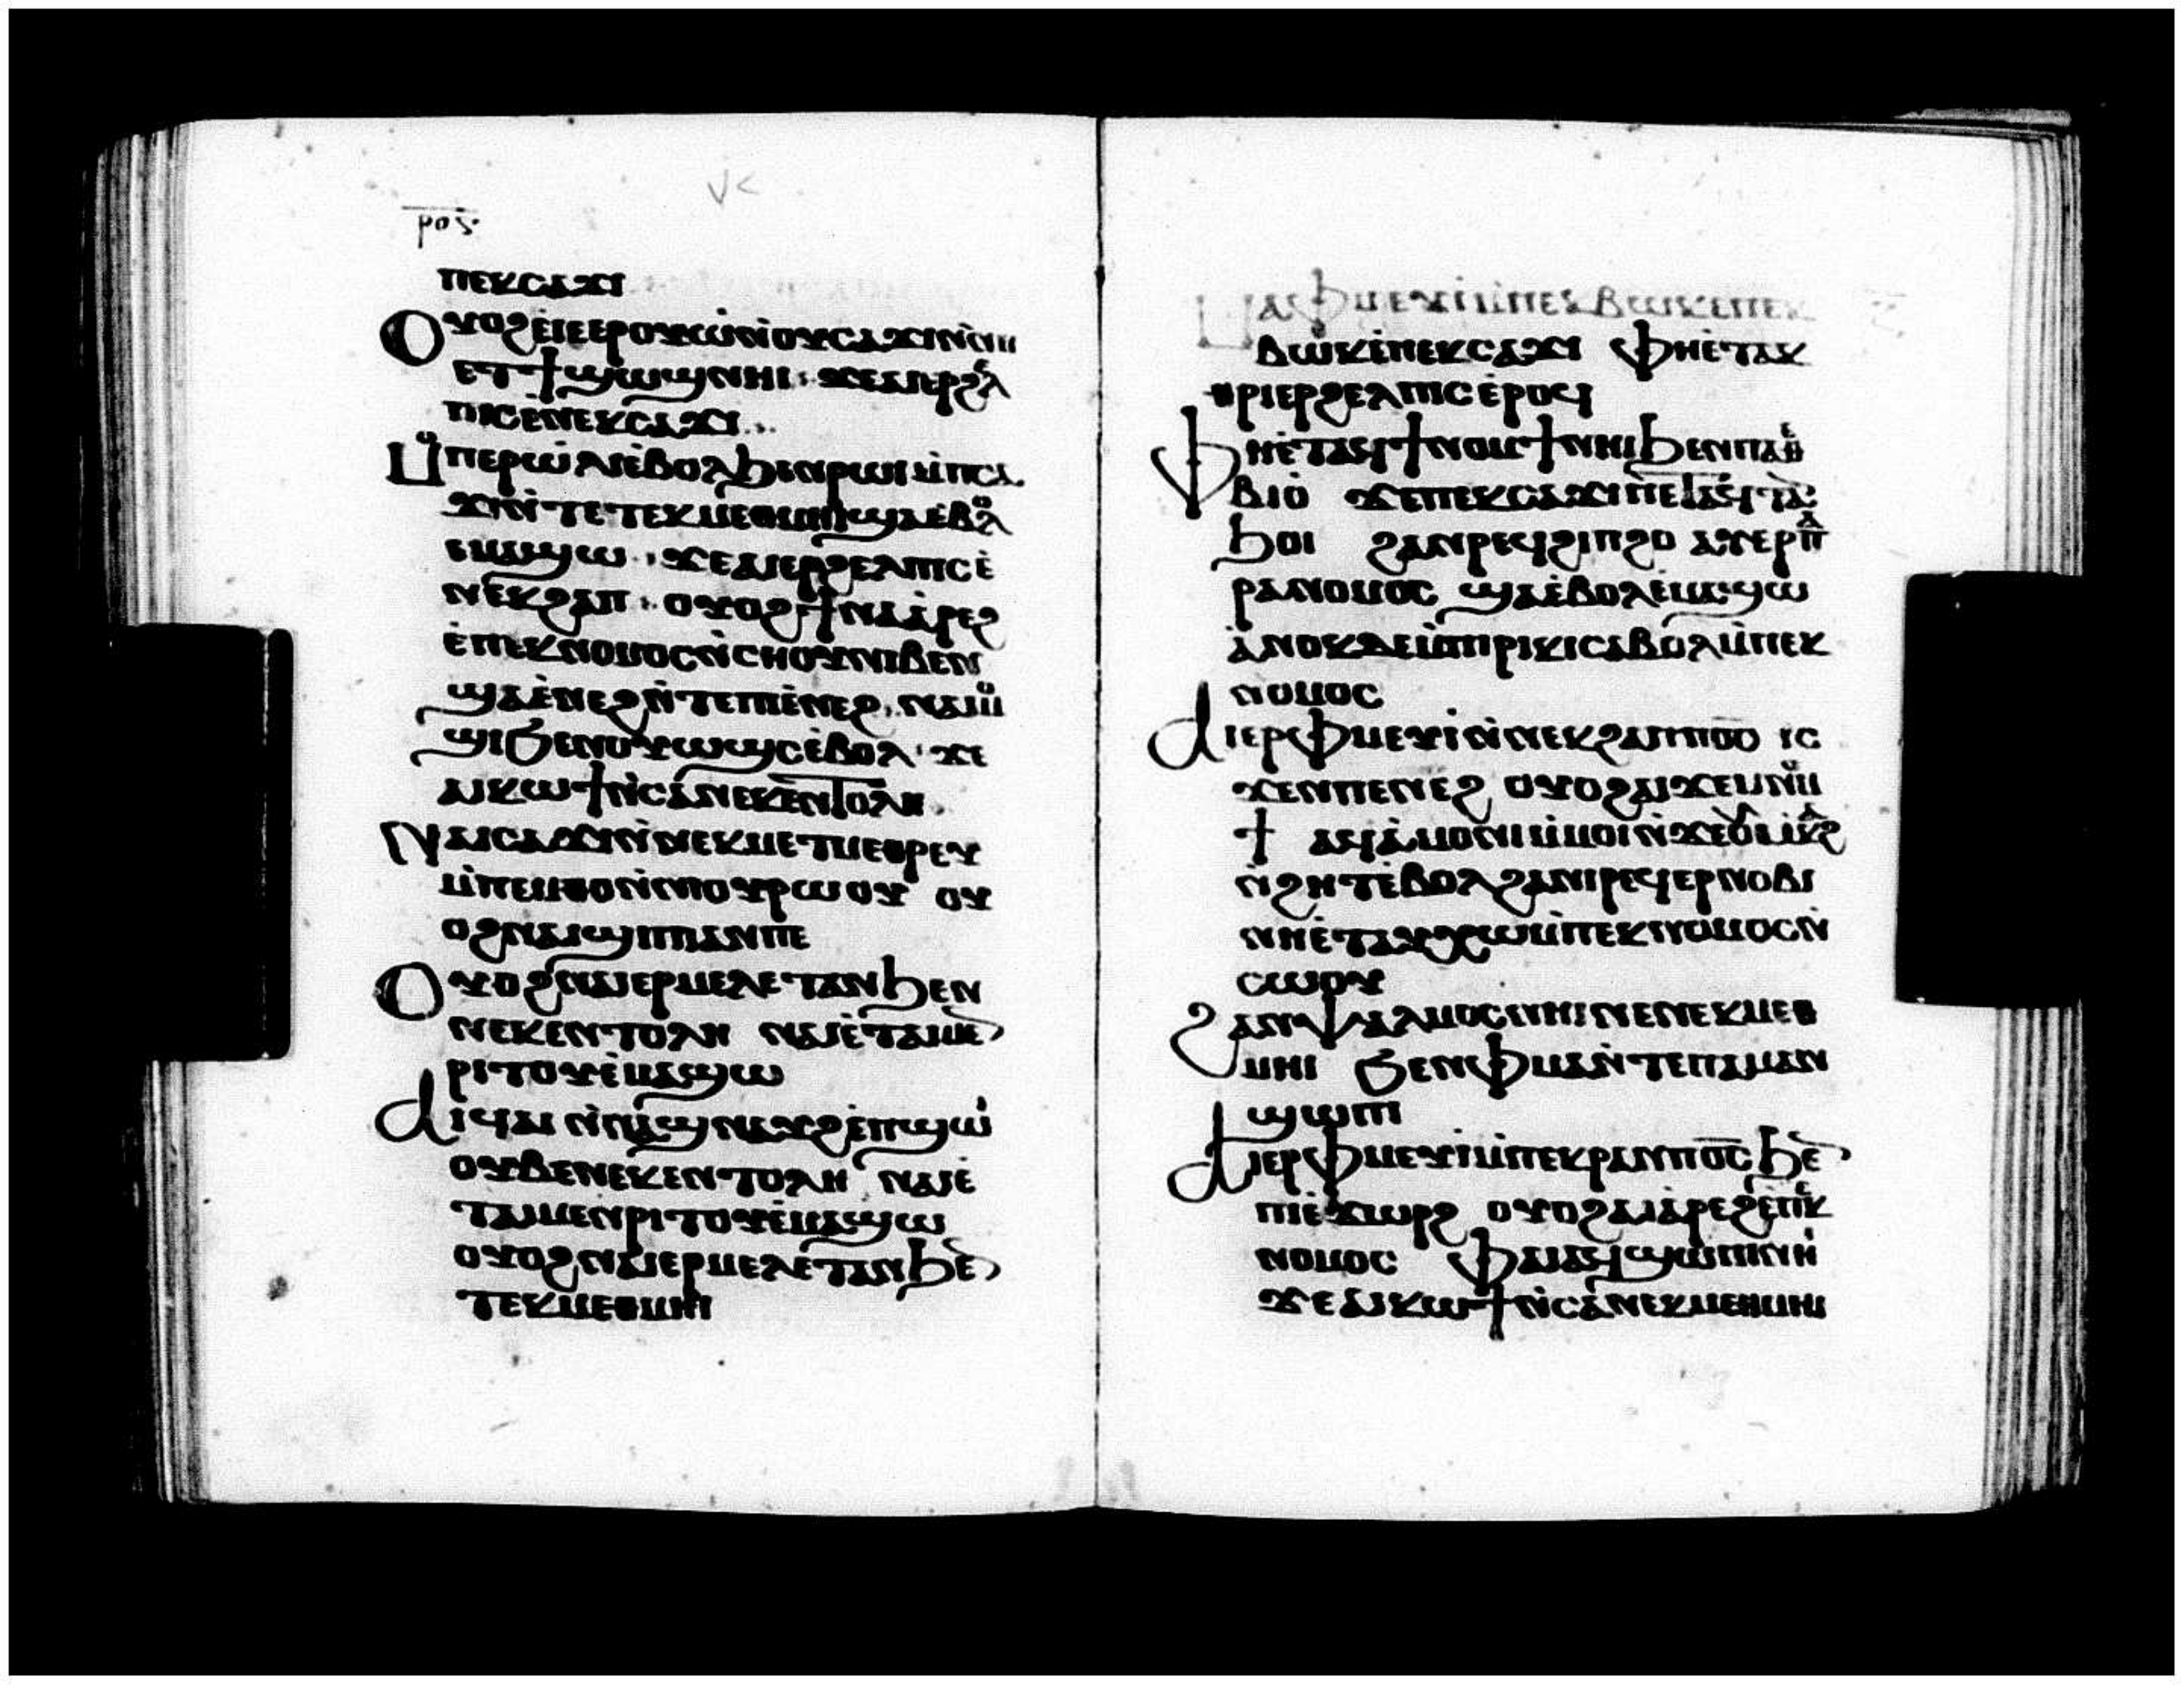 ⲣⲟⲋ
ⲡⲉⲕⲥⲁϫⲓ
Ⲟⲩⲟϩ ⲉⲓⲉⲉⲣⲟⲩⲱ ⲛⲟⲩⲥⲁϫⲓ ⲛⲛⲏ
ⲉⲧϯϣⲱϣ ⲛⲏⲓ ϫⲉ ⲁⲓⲉⲣϩⲉⲗ
ⲡⲓⲥ ⲉⲛⲉⲕⲥⲁϫⲓ
Ⲙⲡⲉⲣⲱⲗⲓ ⲉⲃⲟⲗ ϧⲉⲛ ⲣⲱⲓ ⲙⲡⲥⲁ
ϫⲓ ⲛⲧⲉ ⲧⲉⲕⲙⲉⲑⲙⲏⲓ ϣⲁ ⲉⲃⲟⲗ
ⲉⲙⲁϣⲱ ϫⲉ ⲁⲓⲉⲣϩⲉⲗⲡⲓⲥ ⲉ
ⲛⲉⲕϩⲁⲡ ⲟⲩⲟϩ ϯⲛⲁⲁⲣⲉϩ
ⲉⲡⲉⲕⲛⲟⲙⲟⲥ ⲛⲥⲏⲟⲩ ⲛⲓⲃⲉⲛ
ϣⲁ ⲉⲛⲉϩ ⲛⲧⲉ ⲡⲓⲉⲛⲉϩ ⲛⲁⲓⲙⲟ
ϣⲓ ϭⲉⲛ ⲟⲩⲱϣⲥ ⲉⲃⲟⲗ ϫⲉ
ⲁⲓⲕⲱϯ ⲛⲥⲁ ⲛⲉⲕⲉⲛⲧⲟⲗⲏ
Ⲛⲁⲓⲥⲁϫⲓ ⲛⲛⲉⲕⲙⲉⲧⲙⲉⲑⲣⲉⲩ
ⲙⲡⲉⲙⲑⲟ ⲛⲛⲓⲟⲩⲣⲱⲟⲩ ⲟⲩ
ⲟϩ ⲛⲁⲓϣⲓⲡⲓ ⲁⲛ ⲡⲉ
Ⲟⲩⲟϩ ⲛⲁⲓⲉⲣⲙⲉⲗⲉⲧⲁⲛ ϧⲉⲛ
ⲛⲉⲕⲉⲛⲧⲟⲗⲏ ⲛⲁⲓ ⲉⲧⲁⲓⲙⲉⲛ
ⲣⲓⲧⲟⲩ ⲉⲙⲁϣⲱ
Ⲁⲓϥⲁⲓ ⲛⲛⲁϣⲛⲁⲩϩ ⲉⲡϣⲱⲓ
ⲟⲩⲃⲉ ⲛⲉⲕⲉⲛⲧⲟⲗⲏ ⲛⲁⲓ ⲉ
ⲧⲁⲓⲙⲉⲛⲣⲓⲧⲟⲩ ⲉⲙⲁϣⲱ
ⲟⲩⲟϩ ⲛⲁⲓⲉⲣⲙⲉⲗⲉⲧⲁⲛ ϧⲉⲛ
ⲧⲉⲕⲙⲉⲑⲙⲏⲓ
ⲫⲙⲉⲩⲓ ⲙⲡⲉⲕⲃⲱⲕ ⲉⲡⲉⲕ
ⲃⲱⲕ ⲉⲡⲉⲕⲥⲁϫⲓ ⲫⲏ ⲉⲧⲁⲕ
ⲑⲣⲓⲉⲣϩⲉⲗⲡⲓⲥ ⲉⲣⲟϥ
Ⲫⲏ ⲉⲧⲁϥϯⲛⲟⲙϯ ⲛⲏⲓ ϧⲉⲛ ⲡⲁⲑⲉ
ⲃⲓⲟ ϫⲉ ⲡⲉⲕⲥⲁϫⲓ ⲡⲉⲧⲁϥⲧⲁⲛ
ϧⲟⲓ ϩⲁⲛⲣⲉϥϩⲓⲡϩⲟ ⲁⲩⲉⲣⲡⲁ
ⲣⲁⲛⲟⲙⲟⲥ ϣⲁ ⲉⲃⲟⲗ ⲉⲙⲁϣⲱ
ⲁⲛⲟⲕ ⲇⲉ ⲙⲡⲓⲣⲓⲕⲓ ⲥⲁⲃⲟⲗ ⲙⲡⲉⲕ
ⲛⲟⲙⲟⲥ
Ⲁⲓⲉⲣⲫⲙⲉⲩⲓ ⲛⲛⲉⲕϩⲁⲡ ⲡⲟⲥ ⲓⲥ
ϫⲉⲛ ⲡⲉⲛⲉϩ ⲟⲩⲟϩ ⲁⲓϫⲉⲙⲛⲟⲙ
ϯ ⲁϥⲁⲙⲟⲛⲓ ⲙⲙⲟⲓ ⲛϫⲉ ⲟⲩⲙⲕⲁϩ
ⲛϩⲏⲧ ⲉⲃⲟⲗ ϩⲁ ⲛⲓⲣⲉϥⲉⲣⲛⲟⲃⲓ
ⲛⲏ ⲉⲧⲁⲩⲭⲱ ⲙⲡⲉⲕⲛⲟⲙⲟⲥ ⲛ
ⲥⲱⲟⲩ
Ϩⲁⲛⲯⲁⲗⲙⲟⲥ ⲛⲏⲓ ⲛⲉ ⲛⲉⲕⲙⲉⲑ
ⲙⲏⲓ ϭⲉⲛ ⲫⲙⲁ ⲛⲧⲉ ⲡⲁⲙⲁⲛ
ϣⲱⲡⲓ
Ⲁⲓⲉⲣⲫⲙⲉⲩⲓ ⲙⲡⲉⲕⲣⲁⲛ ⲡⲟⲥ ϧⲉⲛ
ⲡⲓⲉϫⲱⲣϩ ⲟⲩⲟϩ ⲁⲓⲁⲣⲉϩ ⲉⲡⲉⲕ
ⲛⲟⲙⲟⲥ ⲫⲁⲓ ⲁϥϣⲱⲡⲓ ⲛⲏⲓ
ϫⲉ ⲁⲓⲕⲱϯ ⲛⲥⲁ ⲛⲉⲕⲙⲉⲑⲙⲏⲓ